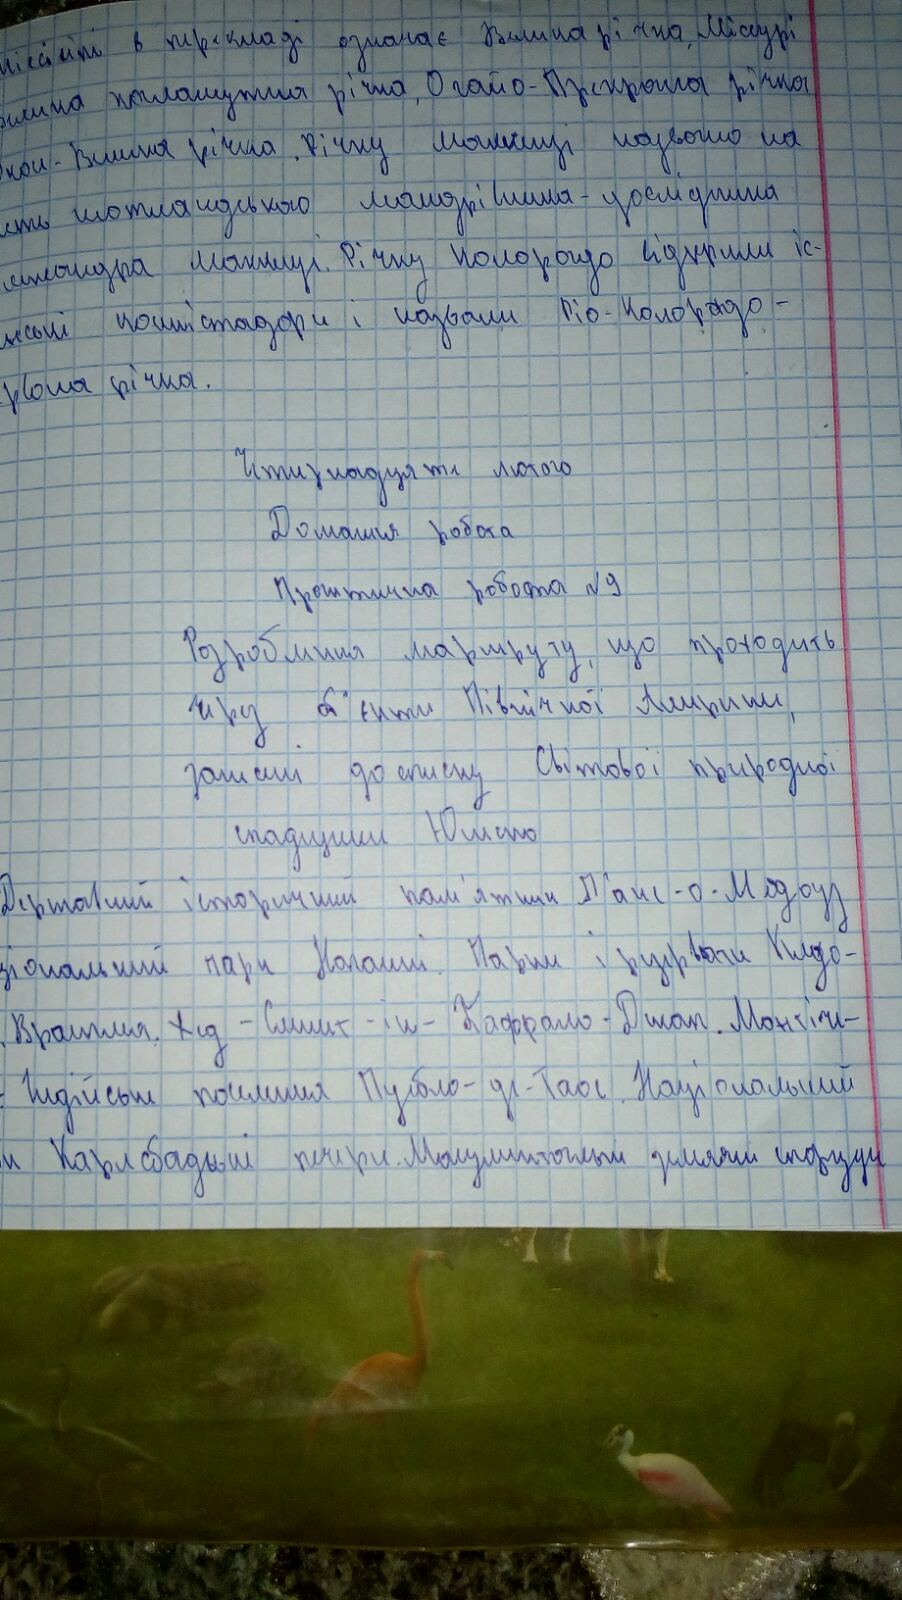 в перекладі означає Велика річка, Міссурі
каламутна річка, Огайо-Прекрасна річка
Велика річка. Річку Маккензі названо на
шотландського мандрівника-дослідника
Маккензі. Річку Колорадо відкрили іс-
конкістадори і назвали Ріо-Колорадо-
річка.
Чотирнадцяте лютого
Домашня робота
Практична робота №9
Розроблення маршруту, що проходить
через об'єкти Північної Америки,
занесені до списку Світової природної
спадщини Юнеско
Державний історичний пам'ятник Л'анс-о-Медоуз
парк Наланні. Парки і резервати Клуо-
Врангеля. Хед-Смашт-ін-Баффало-Джамп. Монтіче-
Індійське поселення Пуебло-де-Таос. Національний
Карлсбадські печери. Монументальні земляні споруди